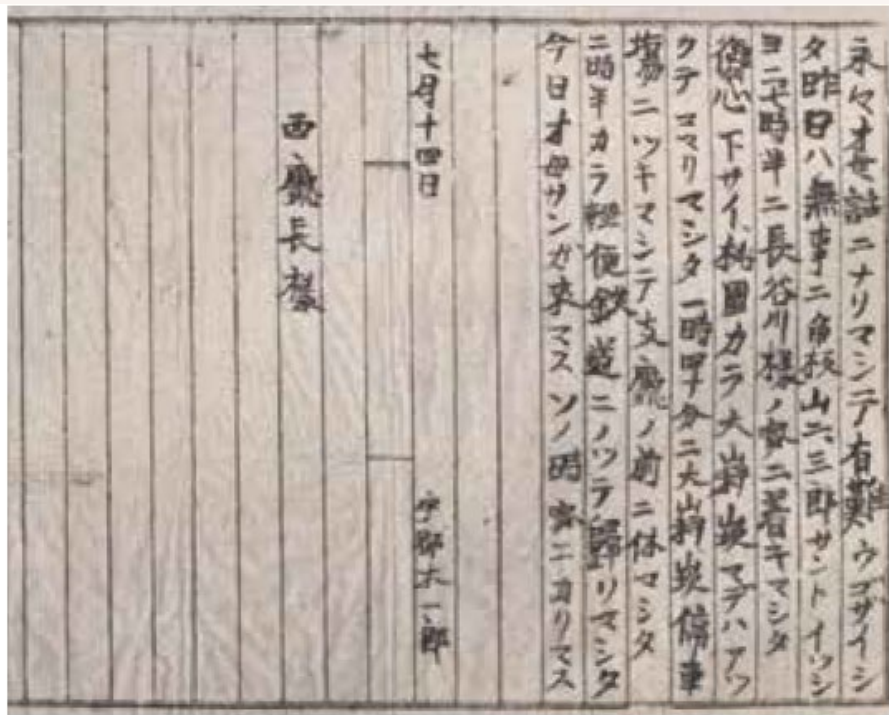 永々オ世話ニナリマシテ有難ウゴザイシ
タ昨日ハ無事ニ角板山ニ、三郎サントイツシ
ヨニ七時半ニ長谷川様ノ家ニ着キマシタ
御心下サイ、桃園カラ大嵙崁マデハアツ
クテコマリマシタ一時四十分ニ大嵙崁停車
場ニツキマシテ支廳ノ前ニ休マシタ
二時半カラ軽便鉄道ニノツテ歸リマシタ
今日オ母サンガ来マスソノ時家ニカリマス
七月十四日 宇都木一郎
西廳長様